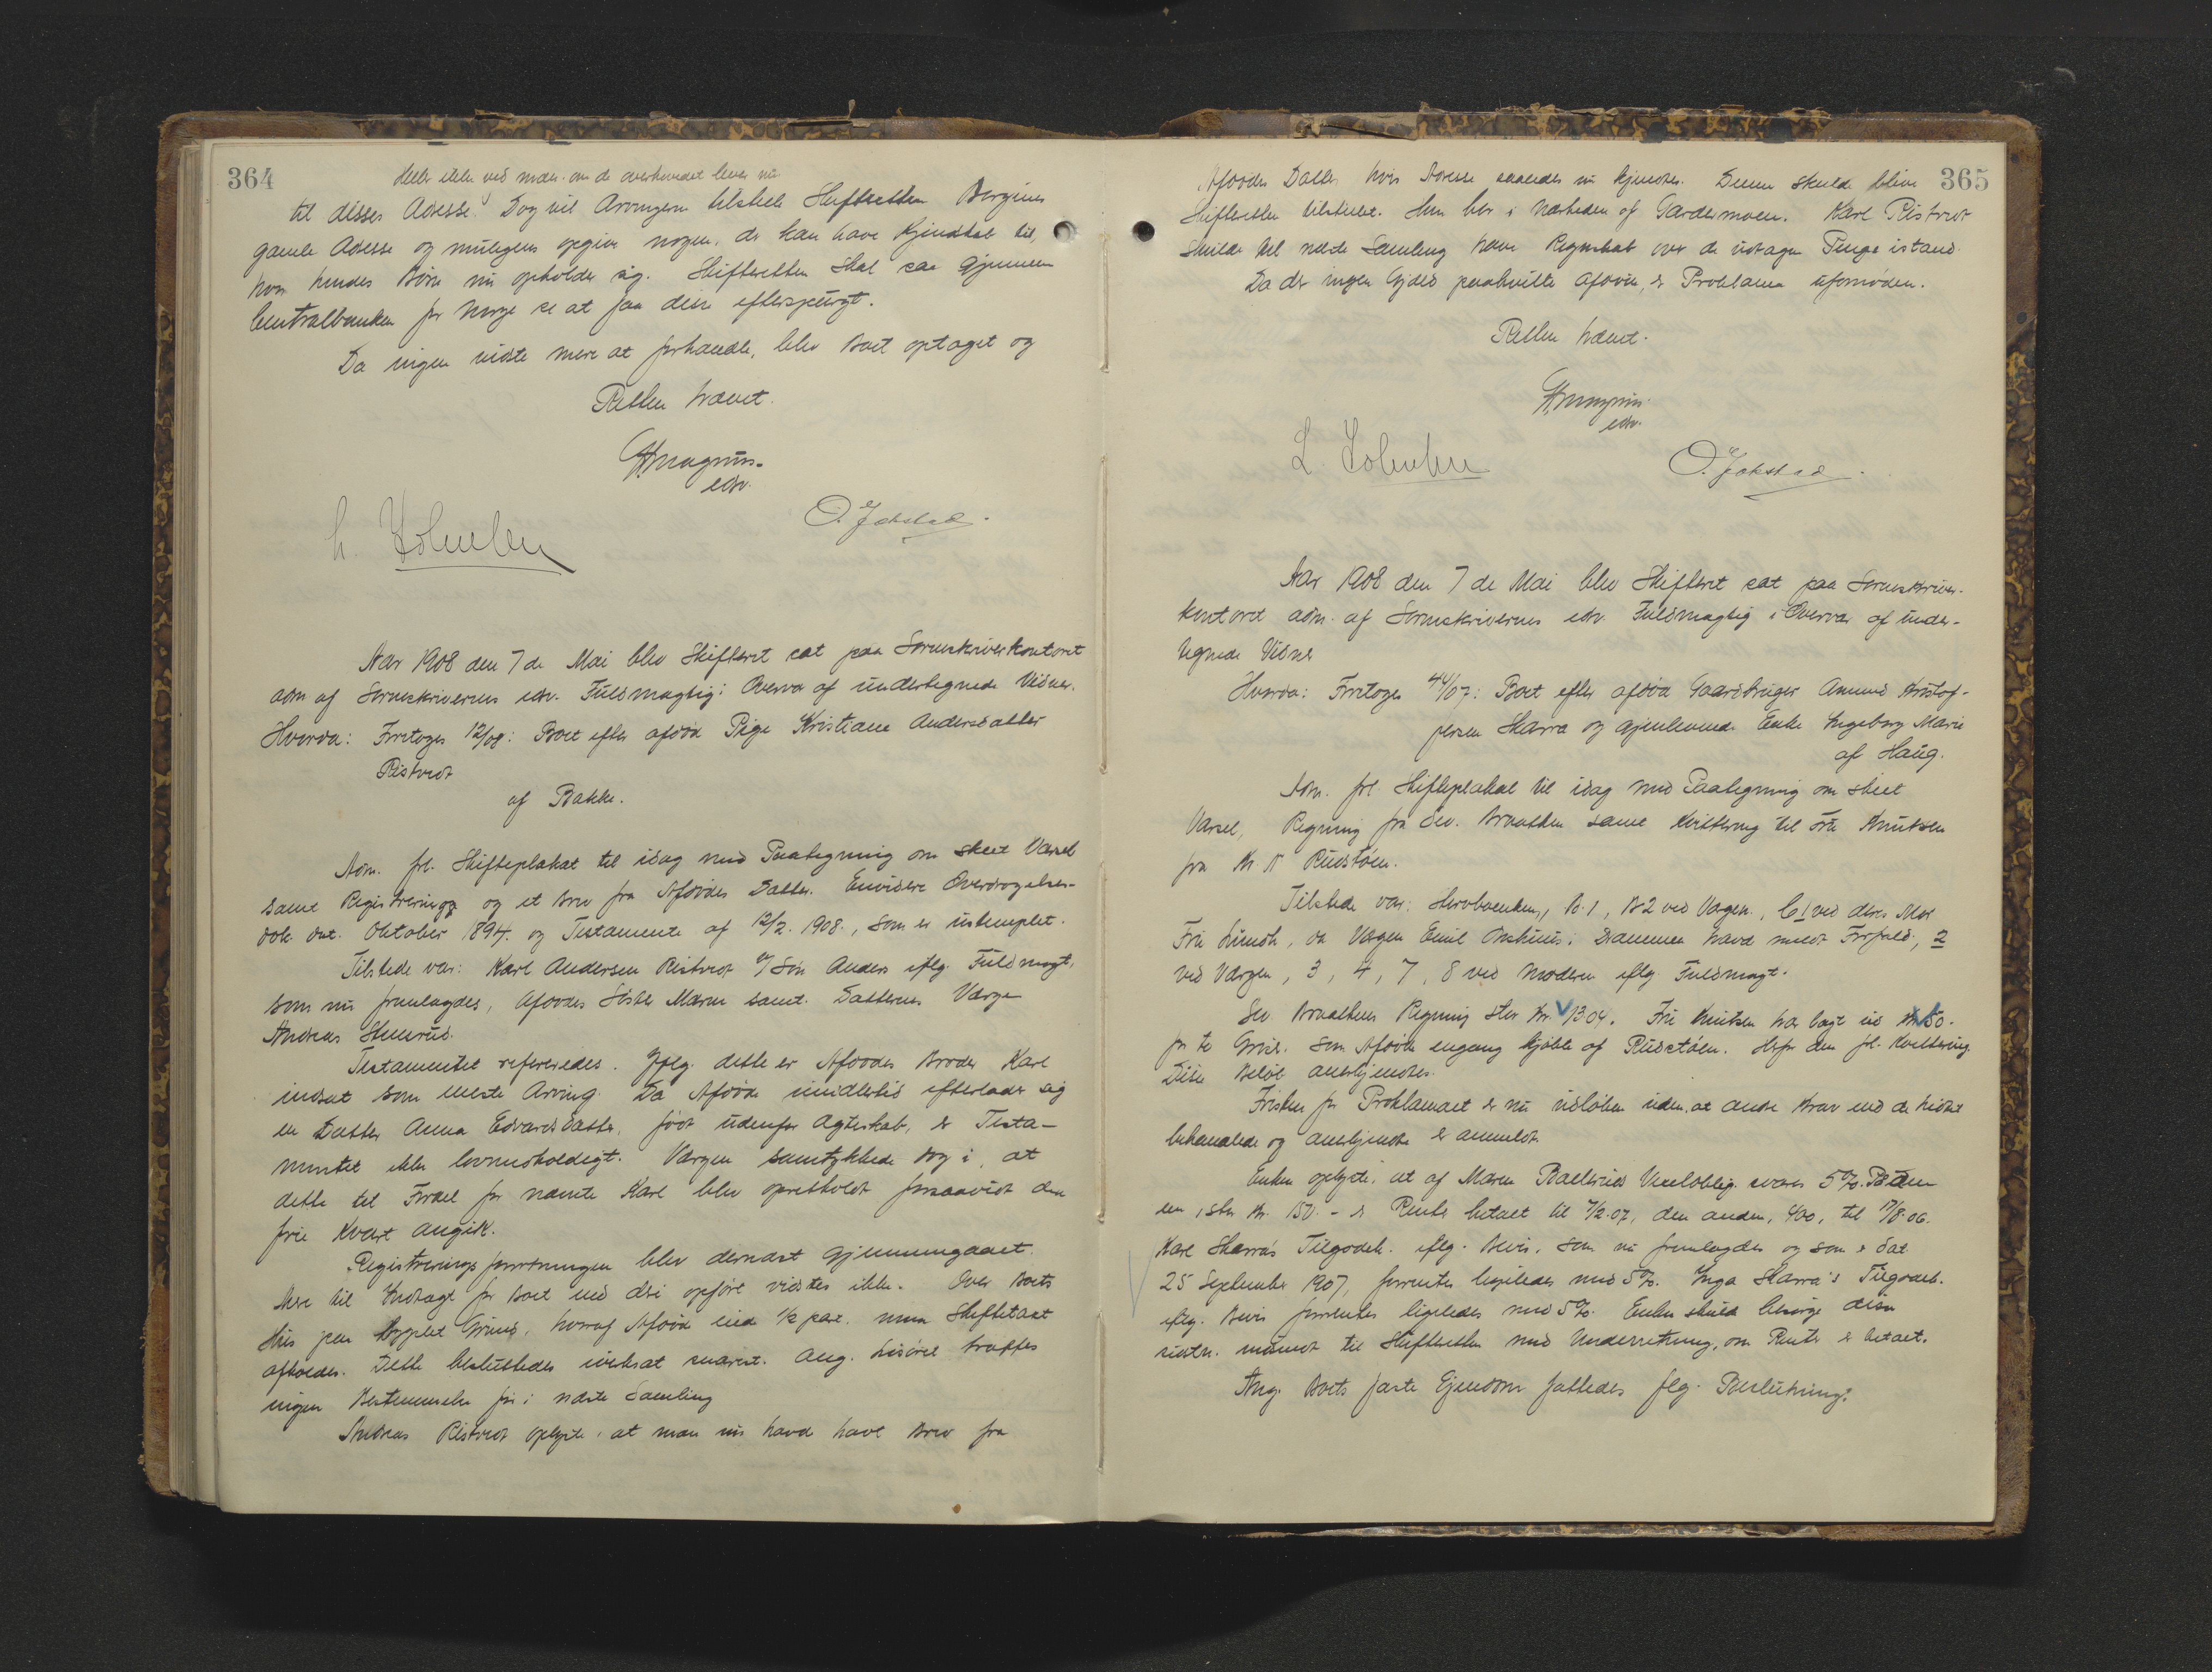 364
Heller ikke ved man om de overhovedet lever nu
til disses Adresse. Dog vil Arvingerne tilstede Skifteretten Bergines
gamle Adresse og muligens opgive nogen, der kan have Kjendskab til,
hvor hendes Børn nu opholder sig. Skifteretten skal saa gjennem
Centralbanken for Norge se at faa dem efterspurgt.
Da ingen vidste mere at forhandle, blev Boet optaget og
Retten hævet.
Magnus.
edsv.
L. Holmsen
O. Jokstad.
Aar 1908 den 7de Mai blev Skifteret sat paa Sorenskriverkontoret
adm af Sorenskriverens edsv. Fuldmægtig i Overvær af undertegnede Vidner.
Hvorda: Foretoges 12/08: Boet efter afdøde Pige Kristiane Andersdatter
Ristvedt
af Bakke.
Adm. frl. Skifteplakat til idag med Paategning om skeet Varsel
samt Registrering og et Brev fra Afdødes Datter. Envidere Overdragelses-
dok. dat. Oktober 1894. og Testamente af 12/2. 1908., som er ustemplet.
Tilstede var: Karl Andersen Ristvedt v/ Søn Anders iflg. Fuldmagt,
som nu fremlagdes, Afdødes Søster Maren samt. Datterens Værge
Andreas
Testamentet refereredes. Iflg. dette er Afdødes Broder Karl
indsat som eneste Arving. Da Afdøde imidlertid efterlader sig
en Datter Anna Edvardsdatter, født udenfor Ægteskab, er Testa-
mentet ikke lovmedholdigt. Værgen samtykkede dog i, at
dette til Fordel for nævnte Karl blev opretholdt forsaavidt den
frie Kvart angik.
Registreringsforretningen blev dernæst gjennemgaaet.
Mere til Indtægt for Boet end deri opført vidstes ikke. Over Boets
Hus paa bygslet Grund, hvoraf Afdøde eied 1/2 part. maa Skiftetaxt
afholdes. Dette besluttedes iverksat snarest. Ang. Løsøret traffes
ingen Bestemmelse før i næste Samling
Andreas Ristvedt oplyste, at man nu havd havt Brev fra
365
Afdødes Datter, hvis Adresse saaledes nu kjendtes. Denne skulde blive
Skifteretten tilstillet. Hun bor i Nærheden af Gardermoen. Karl Ristvedt
skulde til næste Samling have Regnskab over de udtagne Penge istand.
Da der ingen Gjæld paahvilte Afdøde, er Proklama ufornøden.
Retten hævet.
Magnus.
edsv.
L. Holmsen
O. Jokstad.
Aar 1908 den 7de Mai blev Skifteret sat paa Sorenskriver-
kontoret adm. af Sorenskriverens edsv. Fuldmægtig i Overvær af under-
tegnede Vidner
Hvorda: Foretoges 44/07: Boet efter afdøde Gaardbruger Amund Kristof-
fersen Skarra og gjenlevende Enke Ingeborg Marie
af Haug.
Adm. frl. Skifteplakat til idag med Paategning om skeet
Varsel, Regning fra Sev. Braathen samt Kvittering til Fru Knutsen
fra Kr. N Rudstøen.
Tilstede var: Hervborenken, B. 1, B 2 ved Værgen, C 1 ved deres Mor
Fru Lundh, da Værgen Emil i Drammen havd meldt Forfald; 2
ved Værgen, 3, 4, 7, 8 ved Moderen iflg. Fuldmagt.
Sev Braathens Regning stor Kr. 13.04. Fru Knutsen har lagt ud Kr 50.-
for to Grise. som Afdøde engang kjøbte af Rudstøen. Herfor den frl. Kvittering.
Disse Beløb anerkjendtes.
Fristen for Proklamaet er nu udløben uden, at andre Krav end de hidtil
behandlede og anerkjendte er anmeldt.
Enken oplyste, at af Maren Vexelobblig. svares 5%. Paa den
en, stor Kr. 150.- er Rente betalt til 7/2.07, den anden, 400, til 17/8.06.
Karl Skarra's Tilgodeh. iflg. Bevis, som nu fremlagdes og som er dat
25 September 1907, forrentes ligeledes med 5%. Inga Skarra's Tilgodeh.
iflg. Bevis forrentes ligeledes med 5%. Enken skuld besørge disse
sidstn. indsendt til Skifteretten med Underretning, om Rente er betalt.
Ang. Boets faste Eiendom fattedes flg. Beslutning: